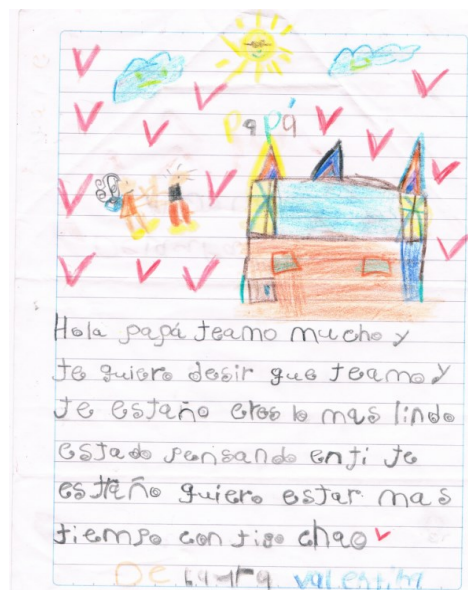 Papá
Hola papá teamo mucho y
te quiero desir que teamo y
te estaño eres lo mas lindo
estado pensando en ti te
estraño quiero estar mas
tiempo con tigo chao
De Laura valestina